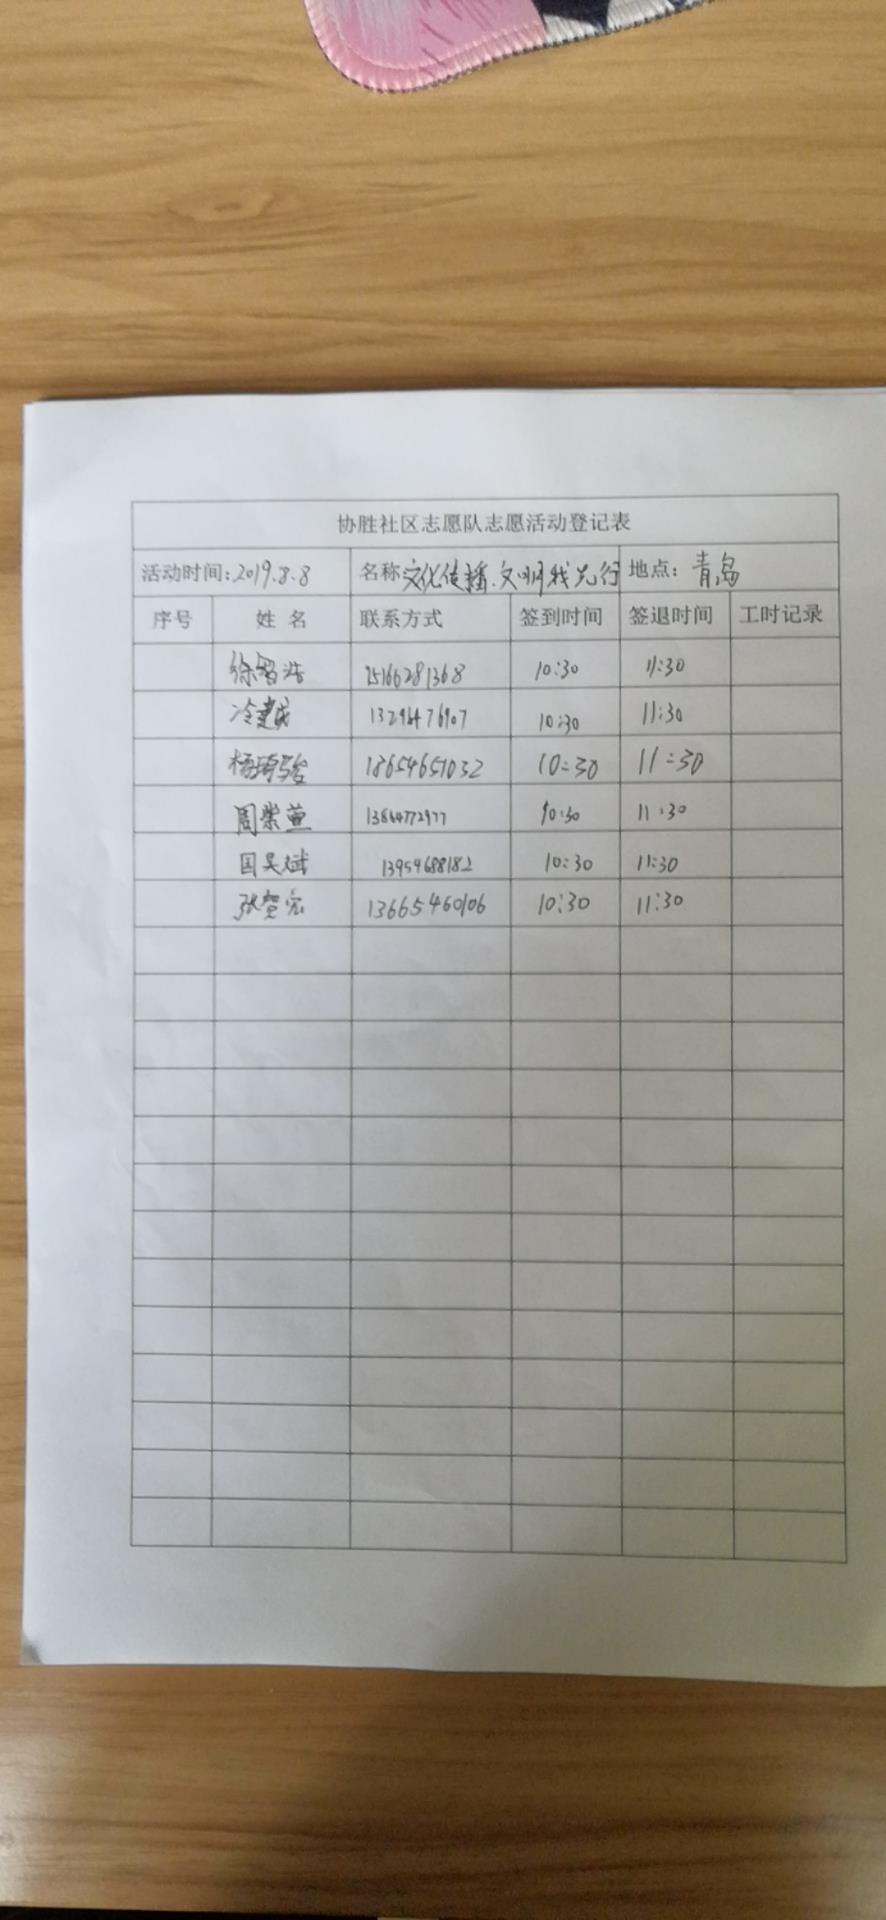 协胜社区志愿队志愿活动登记表
活动时间:2019.8.8 名称 文化传播.文明我先行 地点: 青岛
序号 姓 名 联系方式 签到时间 签退时间 工时记录
徐智浩 15166281368 10:30 11:30
冷建成 10:30 11:30
18654651032 10:30 11:30
周紫萱 10:30 11:30
国昊斌 13954688182 10:30 11:30
张贺宾 13665460106 10:30 11:30